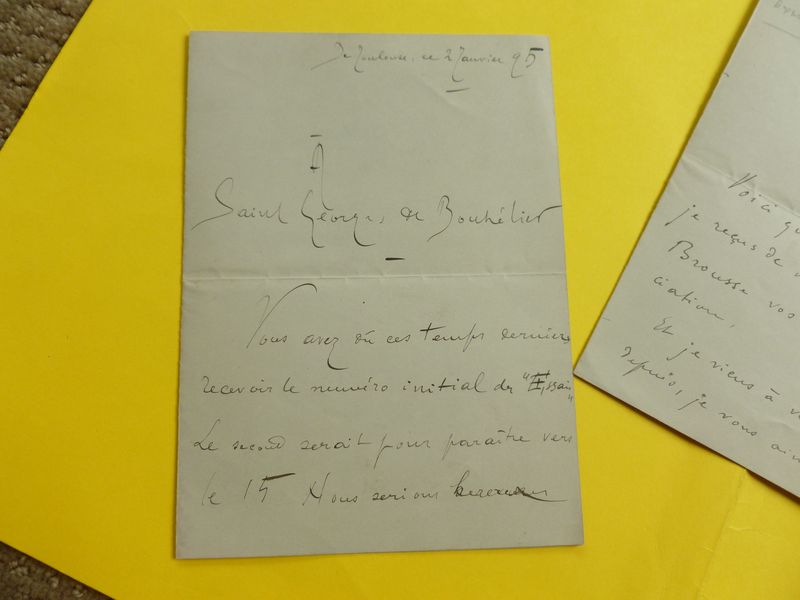 De Toulouse, ce 2 Janvier 95
A
Saint Georges de Bouhélier
Vous avez dû ces temps derniers
recevoir le numéro initial des "Essais"
Le second serait pour paraître vers
le 15 Nous serions heureux
Voici qu
je reçus de
Brousse vos
ciation,
Et je viens à v
depuis, je vous aim